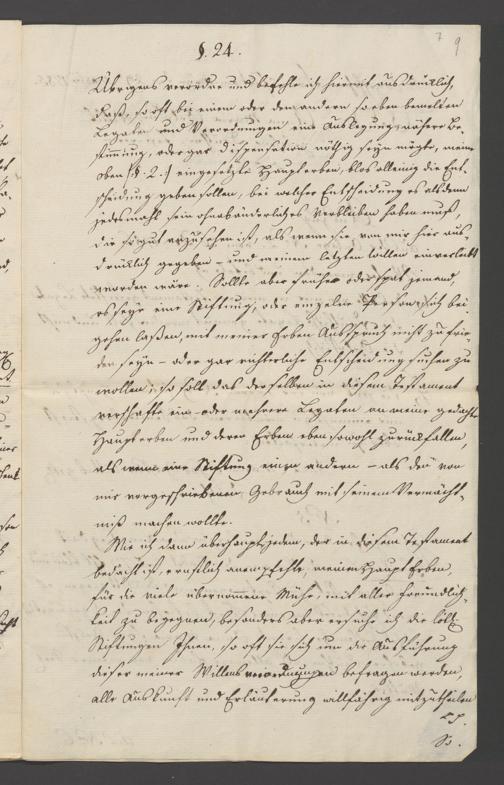 7 9
§. 24.
Übrigens verordne und befehle ich hiermit ausdrücklich,
daß, so oft bei einem oder dem andern so eben bemelten
Legate und Verordnungen eine Auslegung, nähere Be-
stimmung, oder gar dispensation nöthig seyn mögte, meine
oben /:§. 2.:/ eingesetzte Haupterben, blos alleinig die Ent-
scheidung geben sollen, bei welcher Entscheidung es alsdann
jedesmahl sein ohnabänderliches Verbleiben haben muß,
die so gut anzusehen ist, als wenn sie von mir hier aus-
drücklich gegeben – und meinem letzten Willen einverleibt
worden wäre. Sollte aber früher oder spät jemand,
es seye eine Stiftung, oder einzelne Person, sich bei
gehen laßen, mit meiner Erben Ausspruch nicht zufrie-
den seyn – oder gar richterliche Entscheidung suchen zu
wollen; so soll das derselben in diesem Testament
verschafte ein- oder mehrere Legaten an meine gedachte
Haupterben und deren Erben eben sowohl zurückfallen,
als wenn eine Stiftung einen andern – als den von
mir vorgeschriebenen Gebrauch mit seinem Vermächt-
niß machen wollte.
Wie ich dann überhaupt jedem, der in diesem Testament
bedacht ist, ernstlich anempfehle, meinen Haupt Erben
für die viele übernommene Mühe, mit aller Freundlich-
keit zu begegnen, besonders aber ersuche ich die löbl.
Stiftungen Ihnen, so oft sie sich um die Ausführung
dieser meiner Willensverordnungen befragen werden,
alle Auskunft und Erläuterung willfährig mitzutheilen